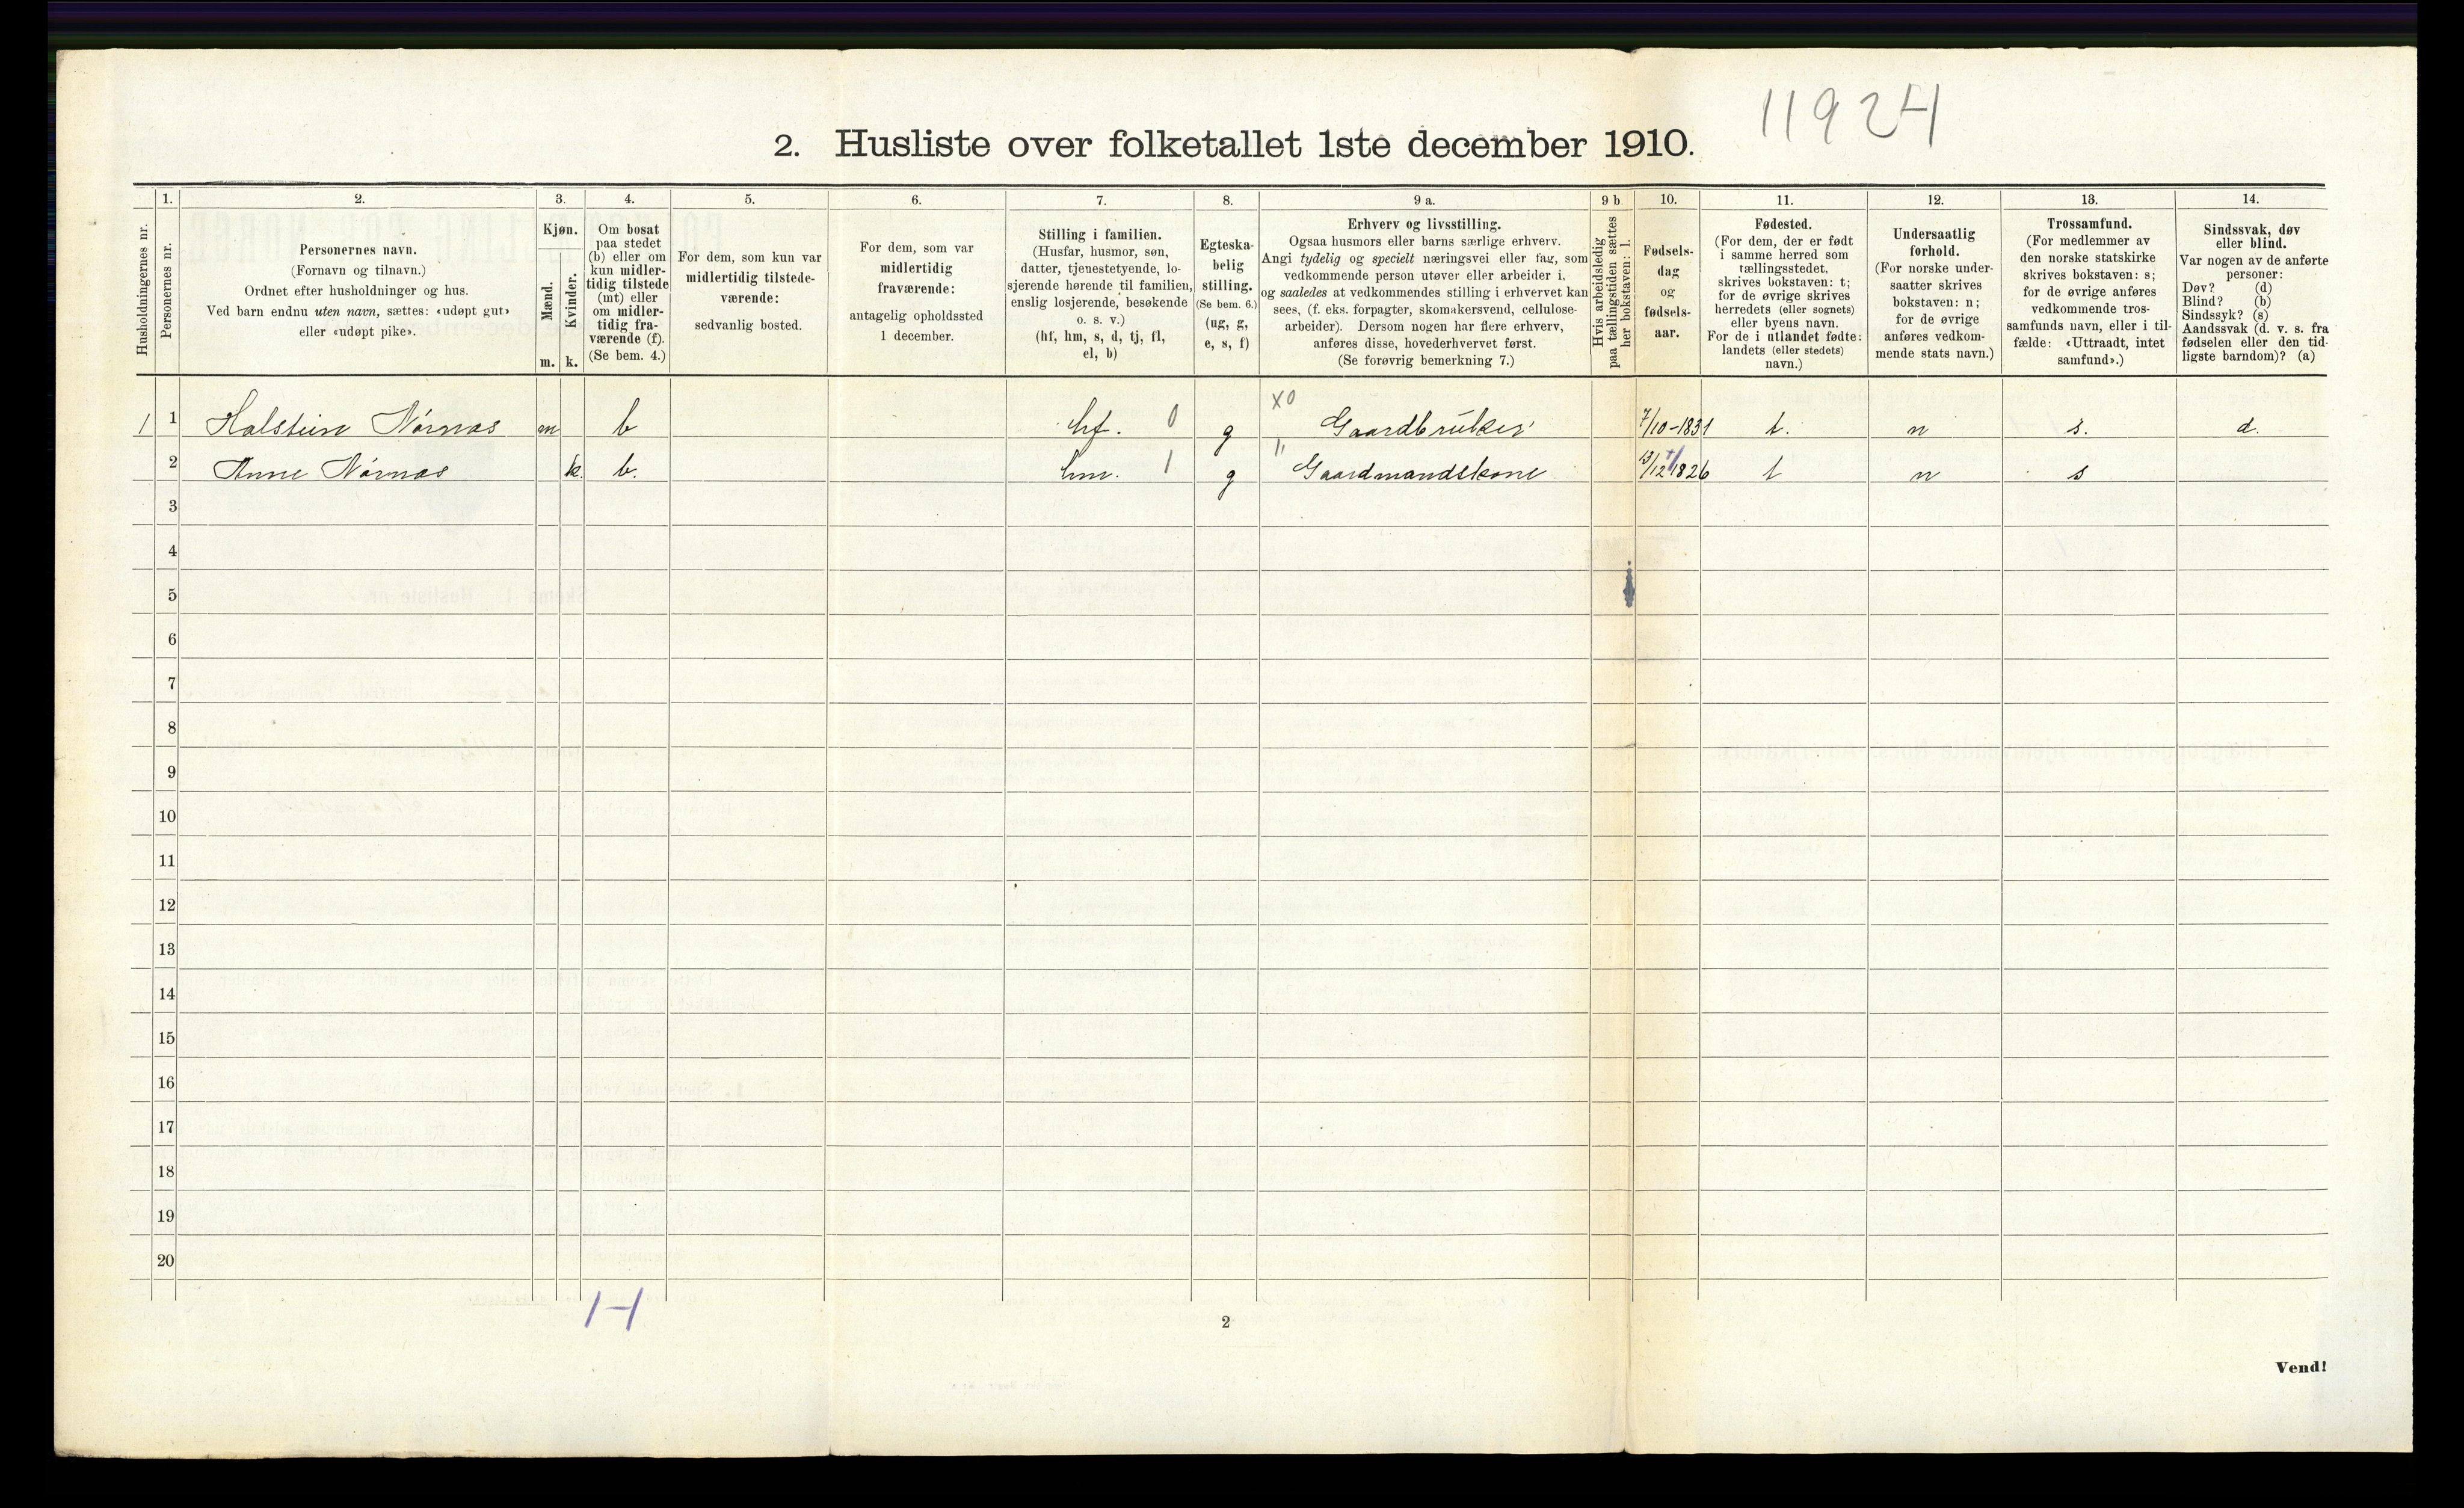 11924
2. Husliste over folketallet 1ste december 1910.
Husholdningernes nr.
1.
Personernes nr.
2.
Personernes navn.
(Fornavn og tilnavn.)
Ordnet efter husholdninger og hus.
Ved barn endnu uten navn, sættes: «udøpt gut»
eller «udøpt pike».
3.
Kjøn.
Mænd.
m.
Kvinder.
k.
4.
Om bosat
paa stedet
(b) eller om
kun midler-
tidig tilstede
(mt) eller
om midler-
tidig fra-
værende (f).
(Se bem. 4.)
5.
For dem, som kun var
midlertidig tilstede-
værende:
sedvanlig bosted.
6.
For dem, som var
midlertidig
fraværende:
antagelig opholdssted
1 december.
7.
Stilling i familien.
(Husfar, husmor, søn,
datter, tjenestetyende, lo-
sjerende hørende til familien,
enslig losjerende, besøkende
o. s. v.)
(hf, hm, s, d, tj, fl,
el, b)
8.
Egteska-
belig
stilling.
(Se bem. 6.)
(ug, g,
e, s, f)
9 a.
Erhverv og livsstilling.
Ogsaa husmors eller barns særlige erhverv.
Angi tydelig og specielt næringsvei eller fag, som
vedkommende person utøver eller arbeider i,
og saaledes at vedkommendes stilling i erhvervet kan
sees, (f. eks. forpagter, skomakersvend, cellulose-
arbeider). Dersom nogen har flere erhverv,
anføres disse, hovederhvervet først.
(Se forøvrig bemerkning 7.)
9 b
Hvis arbeidsledig
paa tællingstiden sættes
her bokstaven: l.
10.
Fødsels-
dag
og
fødsels-
aar.
11.
Fødested.
(For dem, der er født
i samme herred som
tællingsstedet,
skrives bokstaven: t;
for de øvrige skrives
herredets (eller sognets)
eller byens navn.
For de i utlandet fødte:
landets (eller stedets)
navn.)
12.
Undersaatlig
forhold.
(For norske under-
saatter skrives
bokstaven: n;
for de øvrige
anføres vedkom-
mende stats navn.)
13.
Trossamfund.
(For medlemmer av
den norske statskirke
skrives bokstaven: s;
for de øvrige anføres
vedkommende tros-
samfunds navn, eller i til-
fælde: «Uttraadt, intet
samfund».)
14.
Sindssvak, døv
eller blind.
Var nogen av de anførte
personer:
Døv? (d)
Blind? (b)
Sindssyk? (s)
Aandssvak (d. v. s. fra
fødselen eller den tid-
ligste barndom)? (a)
1 1 Halstein Nörnas m b hf. 0 g X0 Gaardbruker 7/10-1831 t. n s. d.
2 Anne Nörnas k. b. hm. 1 g " Gaardmandskone 13/12 1826 t n s
3
4
5
6
7
8
9
10
11
12
13
14
15
16
17
18
19
20
1-1
2
Vend!